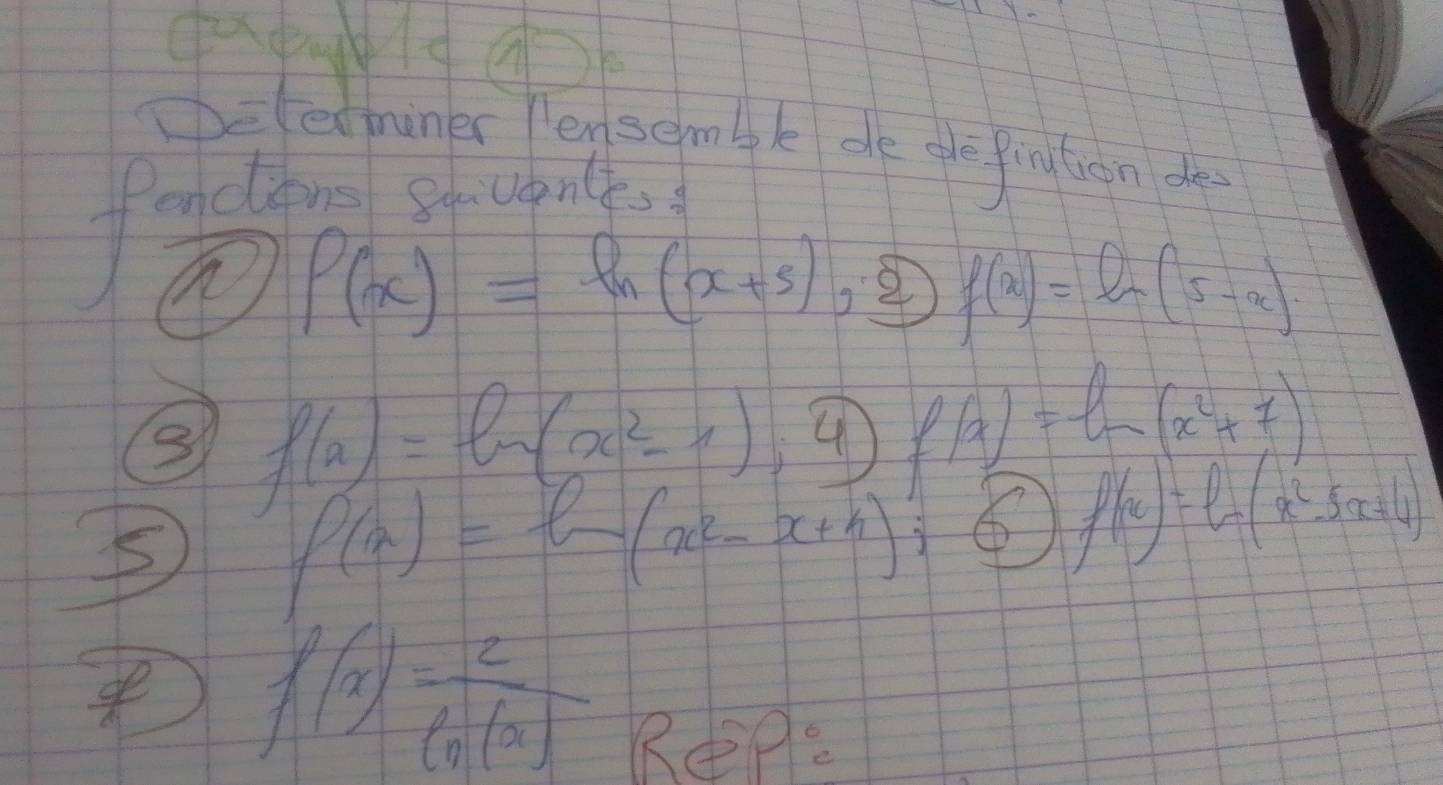 exemple ① :
Déterminer l'ensemble de définition des
fonctions suivantes :
① f(x) = ln(x+5) ; ② f(x) = ln(5-x)
③ f(x) = ln(x²-1) ; ④ f(x) = ln(x²+7)
⑤ f(x) = ln(x²-x+4) ; ⑥ f(x) = ln(x²-5x+4)
⑦ f(x) = 2/ln(x)
REP :